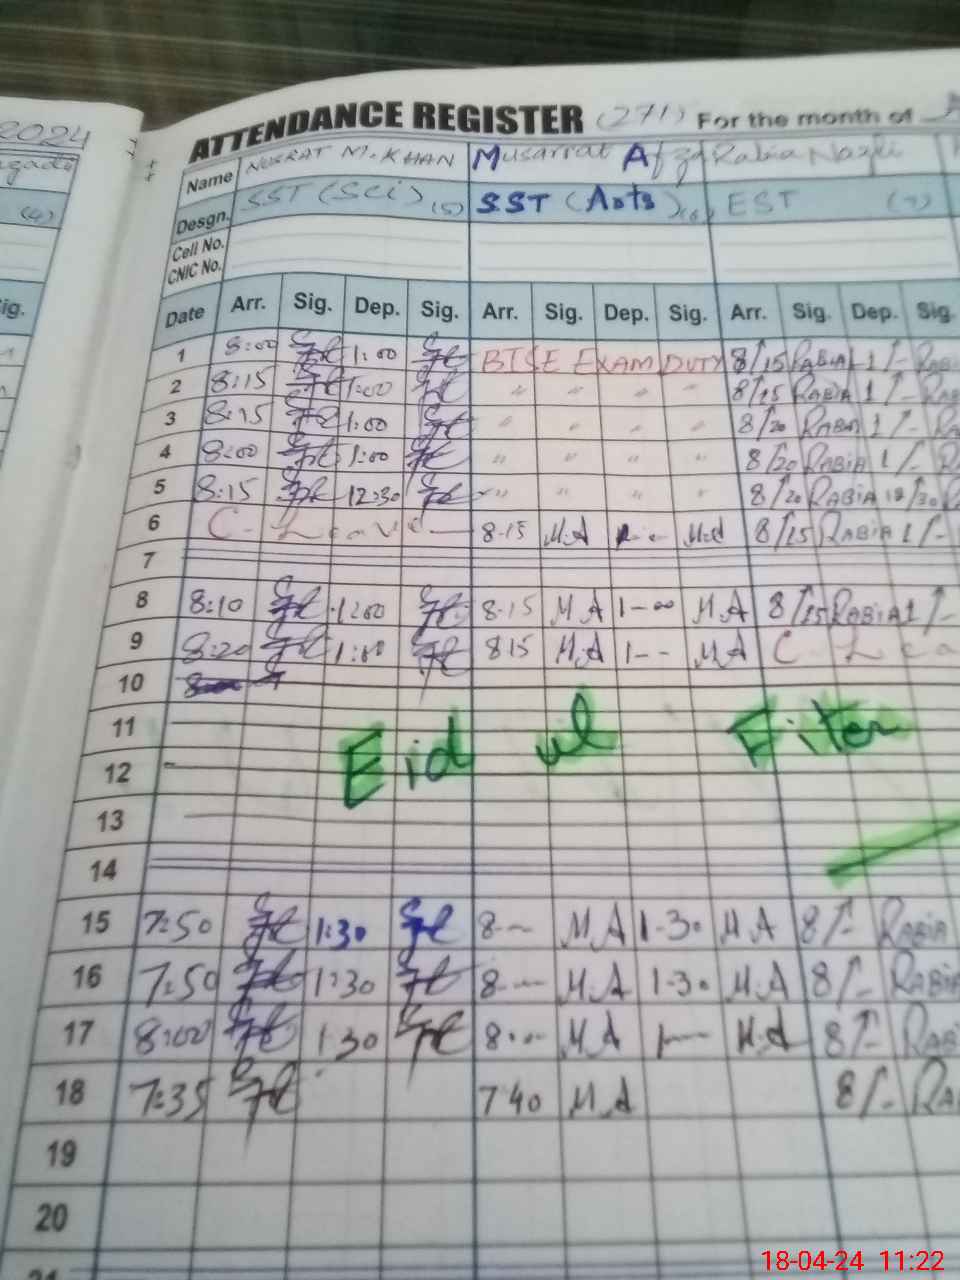 2024
ATTENDANCE REGISTER (271) For the month of
Name NUSRAT M. KHAN Musarrat Afza Rabia Nazli
Desgn. SST (Sci) (5) SST (Arts) (6) EST (7)
(4)
Cell No.
CNIC No.
Date Arr. Sig. Dep. Sig. Arr. Sig. Dep. Sig. Arr. Sig. Dep. Sig.
1 8:00 1:00 BISE EXAM DUTY 8/15 RABIA 1/-
2 8:15 1:00 " " " " 8/15 RABIA 1/-
3 8:15 1:00 " " " " 8/20 RABIA 1/-
4 8:00 1:00 " " " " 8/20 RABIA 1/-
5 8:15 12:30 " " " " 8/20 RABIA 12/30
6 C. Leave 8-15 M.A M.A 8/15 RABIA 1/-
7
8 8:10 1:00 8-15 M.A 1-00 M.A 8/15 RABIA 1/-
9 8:20 1:00 815 M.A 1-- M.A C. Lea
10
11
Eid ul Fiter
12
13
14
15 7:50 1:30 8-- MA 1-30 M A 8/- RABIA
16 7:50 1:30 8-- M.A 1-30 M.A 8/- RABIA
17 8:00 1:30 8-- MA 1-- M.A 8/- RABIA
18 7:35 7 40 M.A 8/- RA
19
20
21
18-04-24 11:22